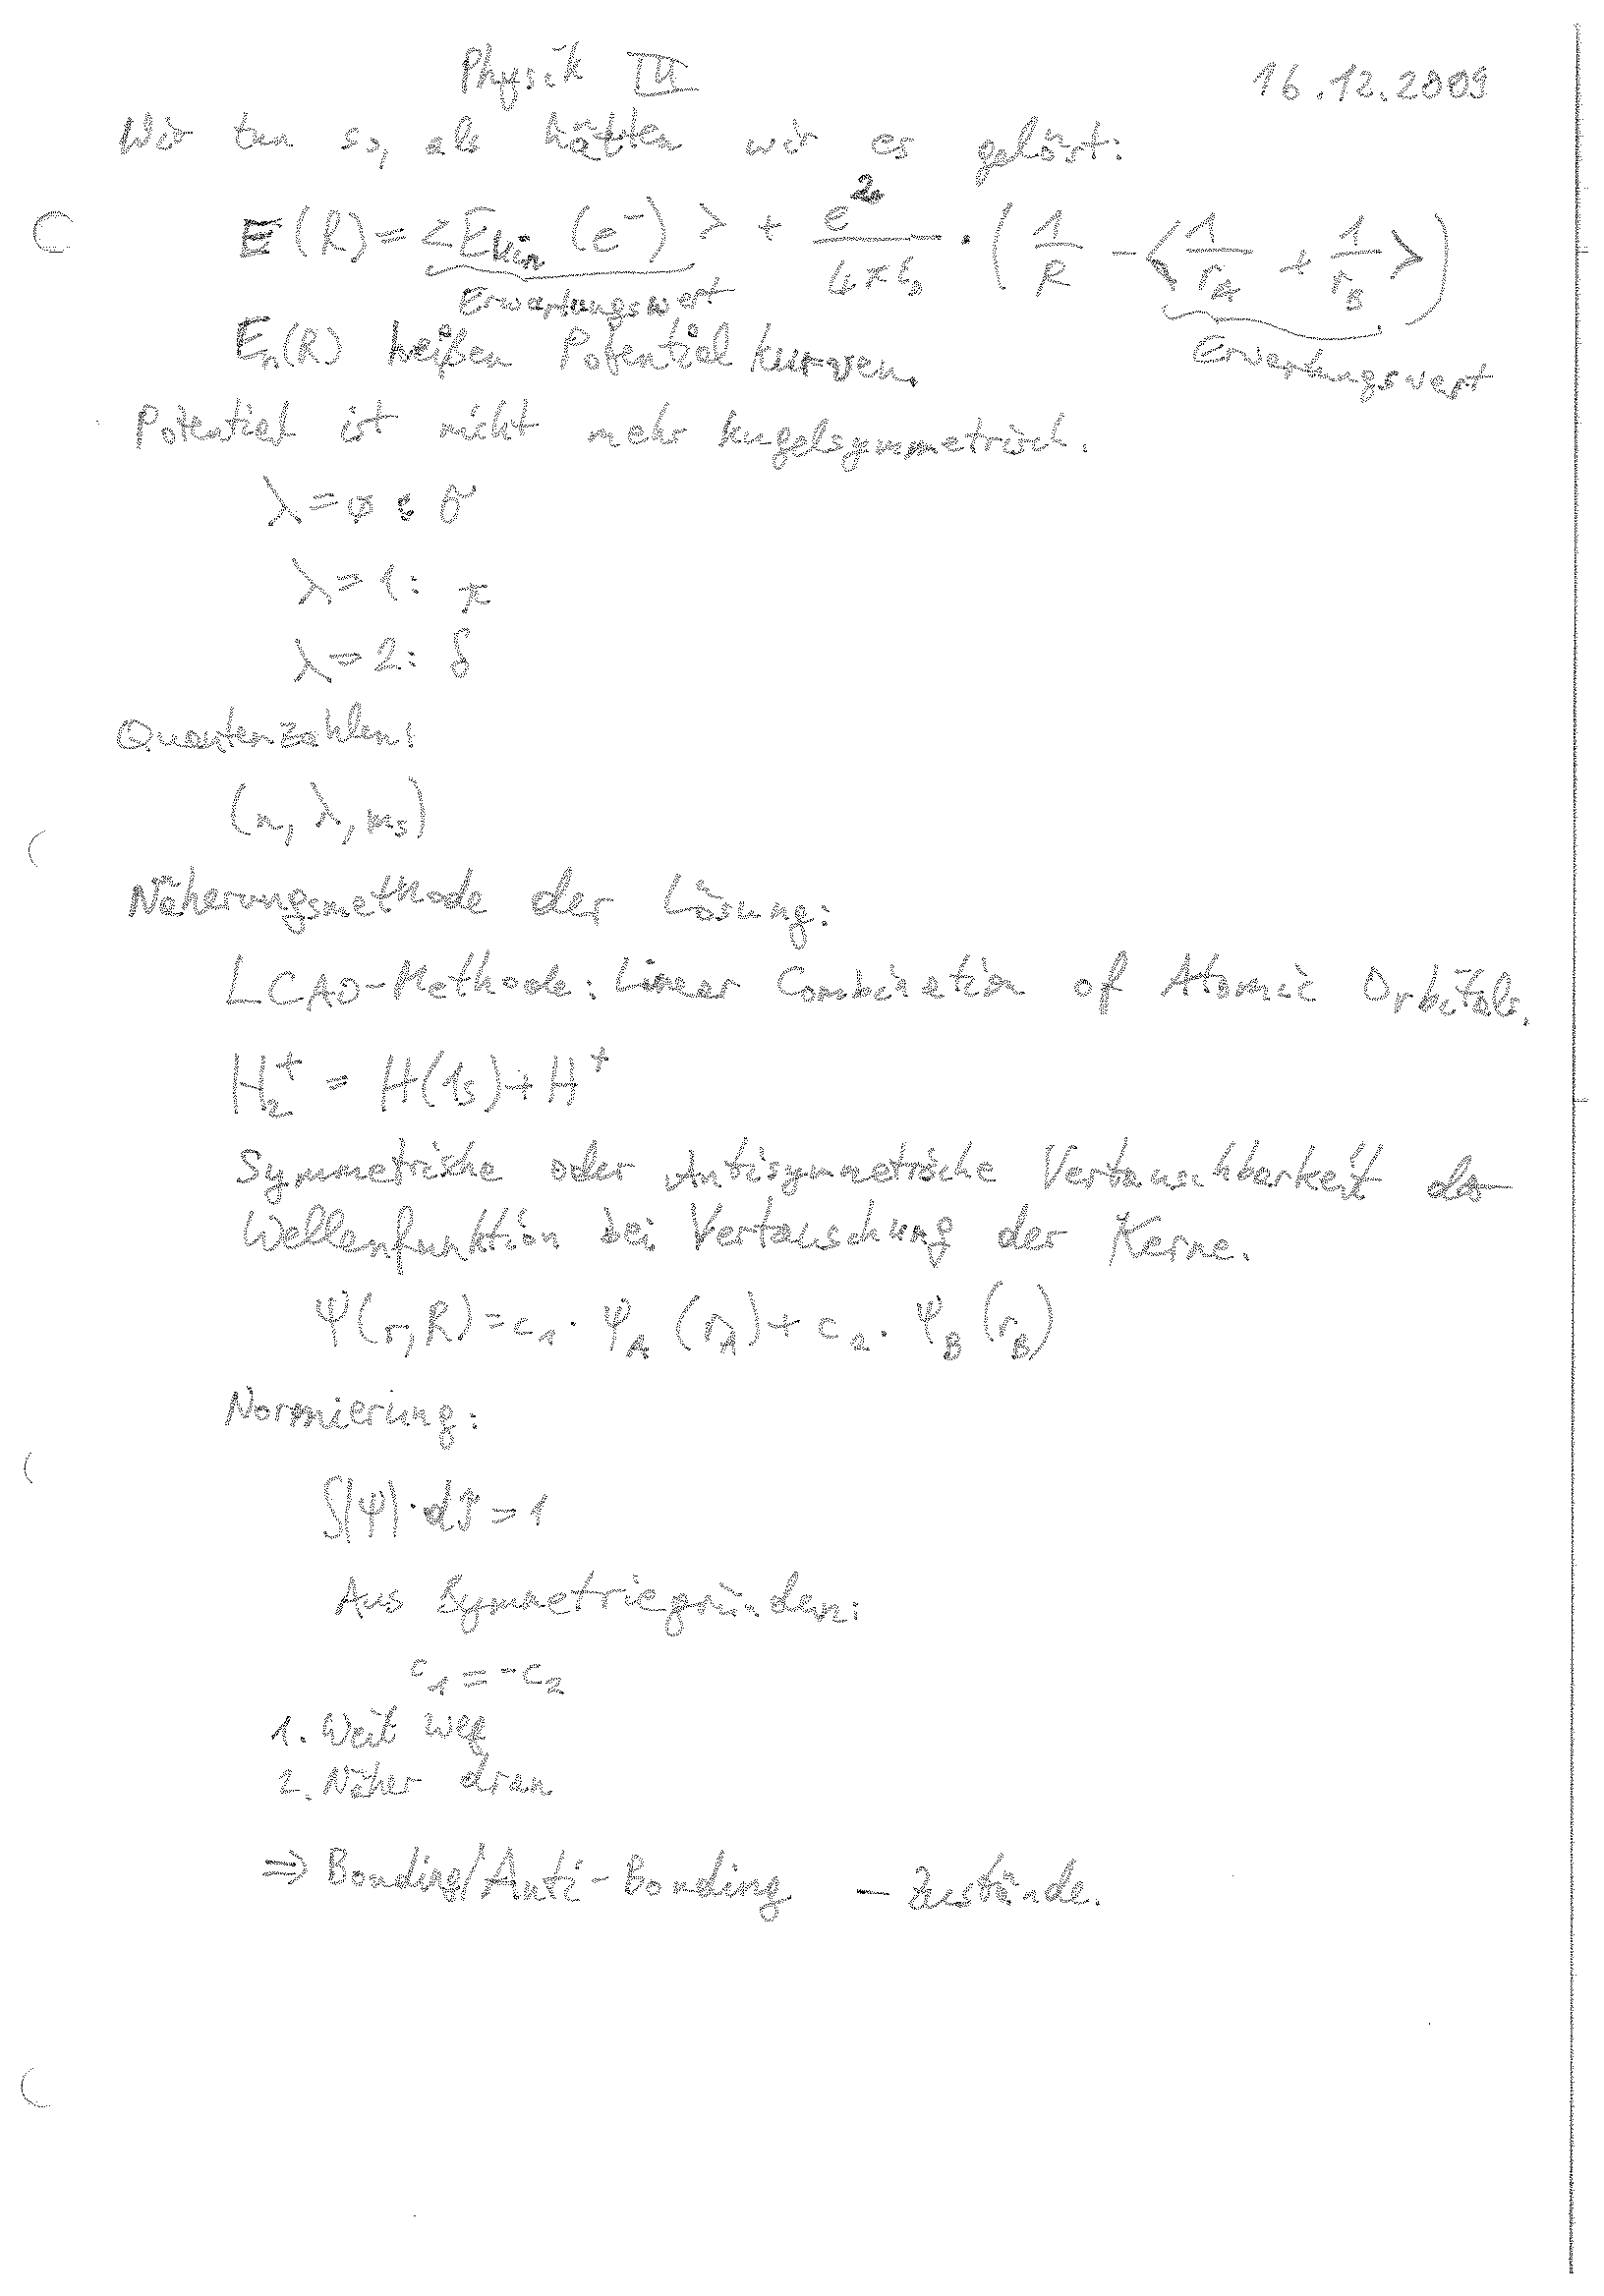 Physik III 16.12.2009
Wir tun so, als hätten wir es gelöst:
E(R) = <E_kin (e⁻)> + e²/(4πε₀) · (1/R - <1/r_A + 1/r_B>)
Erwartungswert
Erwartungswert
E_n(R) heißen Potentialkurven.
Potential ist nicht mehr kugelsymmetrisch.
λ=0: σ
λ=1: π
λ=2: δ
Quantenzahlen:
(n, λ, m_s)
Näherungsmethode der Lösung:
LCAO-Methode: Linear Combination of Atomic Orbitals.
H₂⁺ = H(1s)+H⁺
Symmetrische oder Antisymmetrische Vertauschbarkeit der
Wellenfunktion bei Vertauschung der Kerne.
Ψ(r,R)=c₁· Ψ_A (r_A)+ c₂· Ψ_B (r_B)
Normierung:
∫|Ψ|·dr̂=1
Aus Symmetriegründen:
c₁=-c₂
1. Weit weg
2. Näher dran
⇒ Bonding/Anti-Bonding - Zustände.